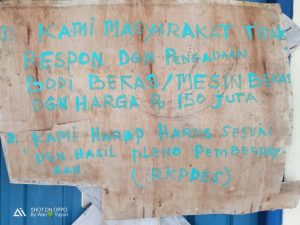 1. KAMI MASYARAKAT TDK
RESPON DGN PENGADAAN
BODI BEKAS/MESIN BEKAS
DGN HARGA Rp 150 JUTA
2. KAMI HARAP HARUS SESUAI
DGN HASIL PLENO PEMBERDAY-
AAN (RKPDES)
SHOT ON OPPO
By Wan Yuyun